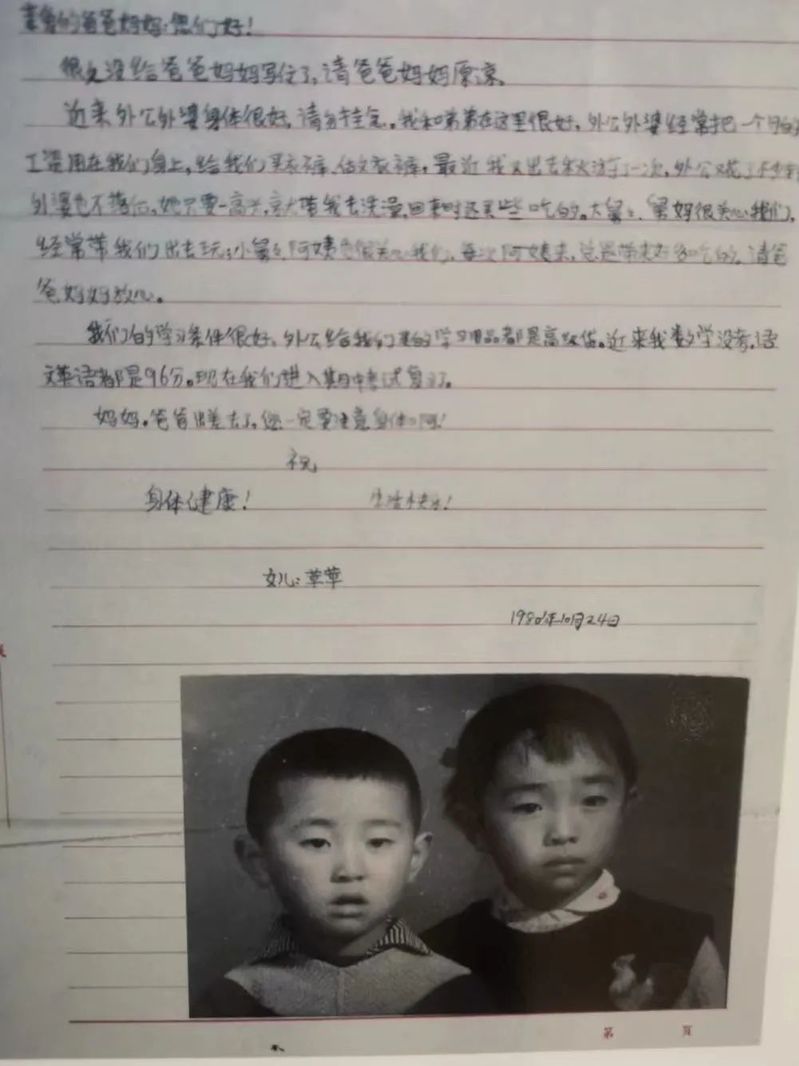 亲爱的爸爸妈妈:您们好!
很久没给爸爸妈妈写信了,请爸爸妈妈原凉。
近来外公外婆身体很好,请勿挂念。我和弟弟在这里很好,外公外婆经常把一个月的
工资用在我们身上,给我们买衣裤、做衣裤,最近我又出去秋游了一次,外公
外婆也不落后,她只要一高兴,就带我去洗澡,回来时还买些吃的。大舅舅、舅妈很关心我们,
经常带我们出去玩;小舅舅阿姨也很关心我们,每次阿姨来,总是带来好多吃的,请爸
爸妈妈放心。
我们的学习条件很好,外公给我们买的学习用品都是高级货。近来我数学没考,语
文英语都是96分。现在我们进入期中考试复习了。
妈妈。爸爸出差去了,您一定要注意身体啊!
祝
身体健康! 生活快乐!
女儿:苹苹
年10月24日
第 页